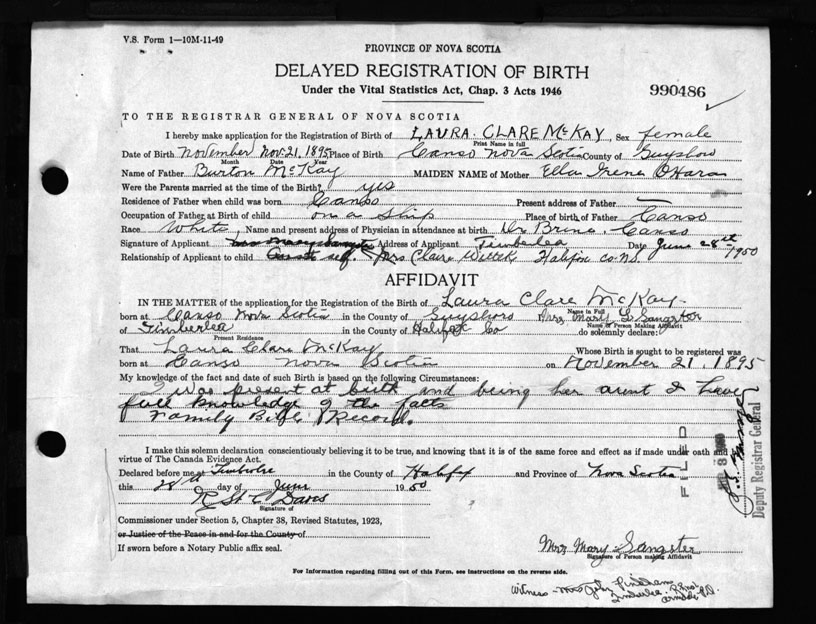 V.S. Form 1—10M-11-49
PROVINCE OF NOVA SCOTIA
DELAYED REGISTRATION OF BIRTH
Under the Vital Statistics Act, Chap. 3 Acts 1946
990486
TO THE REGISTRAR GENERAL OF NOVA SCOTIA
I hereby make application for the Registration of Birth of LAURA CLARE McKAY, Sex female
Print Name in full
Date of Birth November Nov. 21, 1895 Place of Birth Canso Nova Scotia County of Guysboro
Month Date Year
Name of Father Burton McKay MAIDEN NAME of Mother Ella Irene O'Hara
Were the Parents married at the time of the Birth? yes
Residence of Father when child was born Canso Present address of Father —
Occupation of Father at Birth of child on a ship Place of birth of Father Canso
Race White, Name and present address of Physician in attendance at birth Dr Brine, Canso
Signature of Applicant Address of Applicant Timberlea Date June 28th 1950
Relationship of Applicant to child self. Mrs Claire Halifax co. N.S.
AFFIDAVIT
IN THE MATTER of the application for the Registration of the Birth of Laura Clare McKay
Name in Full
born at Canso Nova Scotia in the County of Guysboro Mrs Mary L Sangster
Name of Person Making Affidavit
of Timberlea in the County of Halifax Co do solemnly declare:
Present Residence
That Laura Clare McKay Whose Birth is sought to be registered was
born at Canso Nova Scotia on November 21, 1895
My knowledge of the fact and date of such Birth is based on the following Circumstances:
I was present at birth and being her aunt I have
full knowledge of the facts
Family Bible Record.
I make this solemn declaration conscientiously believing it to be true, and knowing that it is of the same force and effect as if made under oath and
virtue of The Canada Evidence Act.
Declared before me at Timberlea in the County of Halifax and Province of Nova Scotia
this 28th day of June 1950
R St C Davis
Signature of
Commissioner under Section 5, Chapter 38, Revised Statutes, 1923,
or Justice of the Peace in and for the County of
If sworn before a Notary Public affix seal.
FILED
Deputy Registrar General
Mrs Mary Sangster
Signature of Person making Affidavit
For Information regarding filling out of this Form, see instructions on the reverse side.
Witness - Mrs John
Timberlea